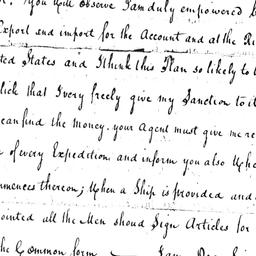 . You will observe I am duly empowered b
Export and import for the Account and at the Ri
ted States and I think this Plan so likely to
lick that I very freely give my Sanction to it
can find the Money. your Agent must give me re
of every Expedition and inform you also Whe
mmences thereon; When a Ship is provided and
ointed all the Men should Sign Articles for
the Common form